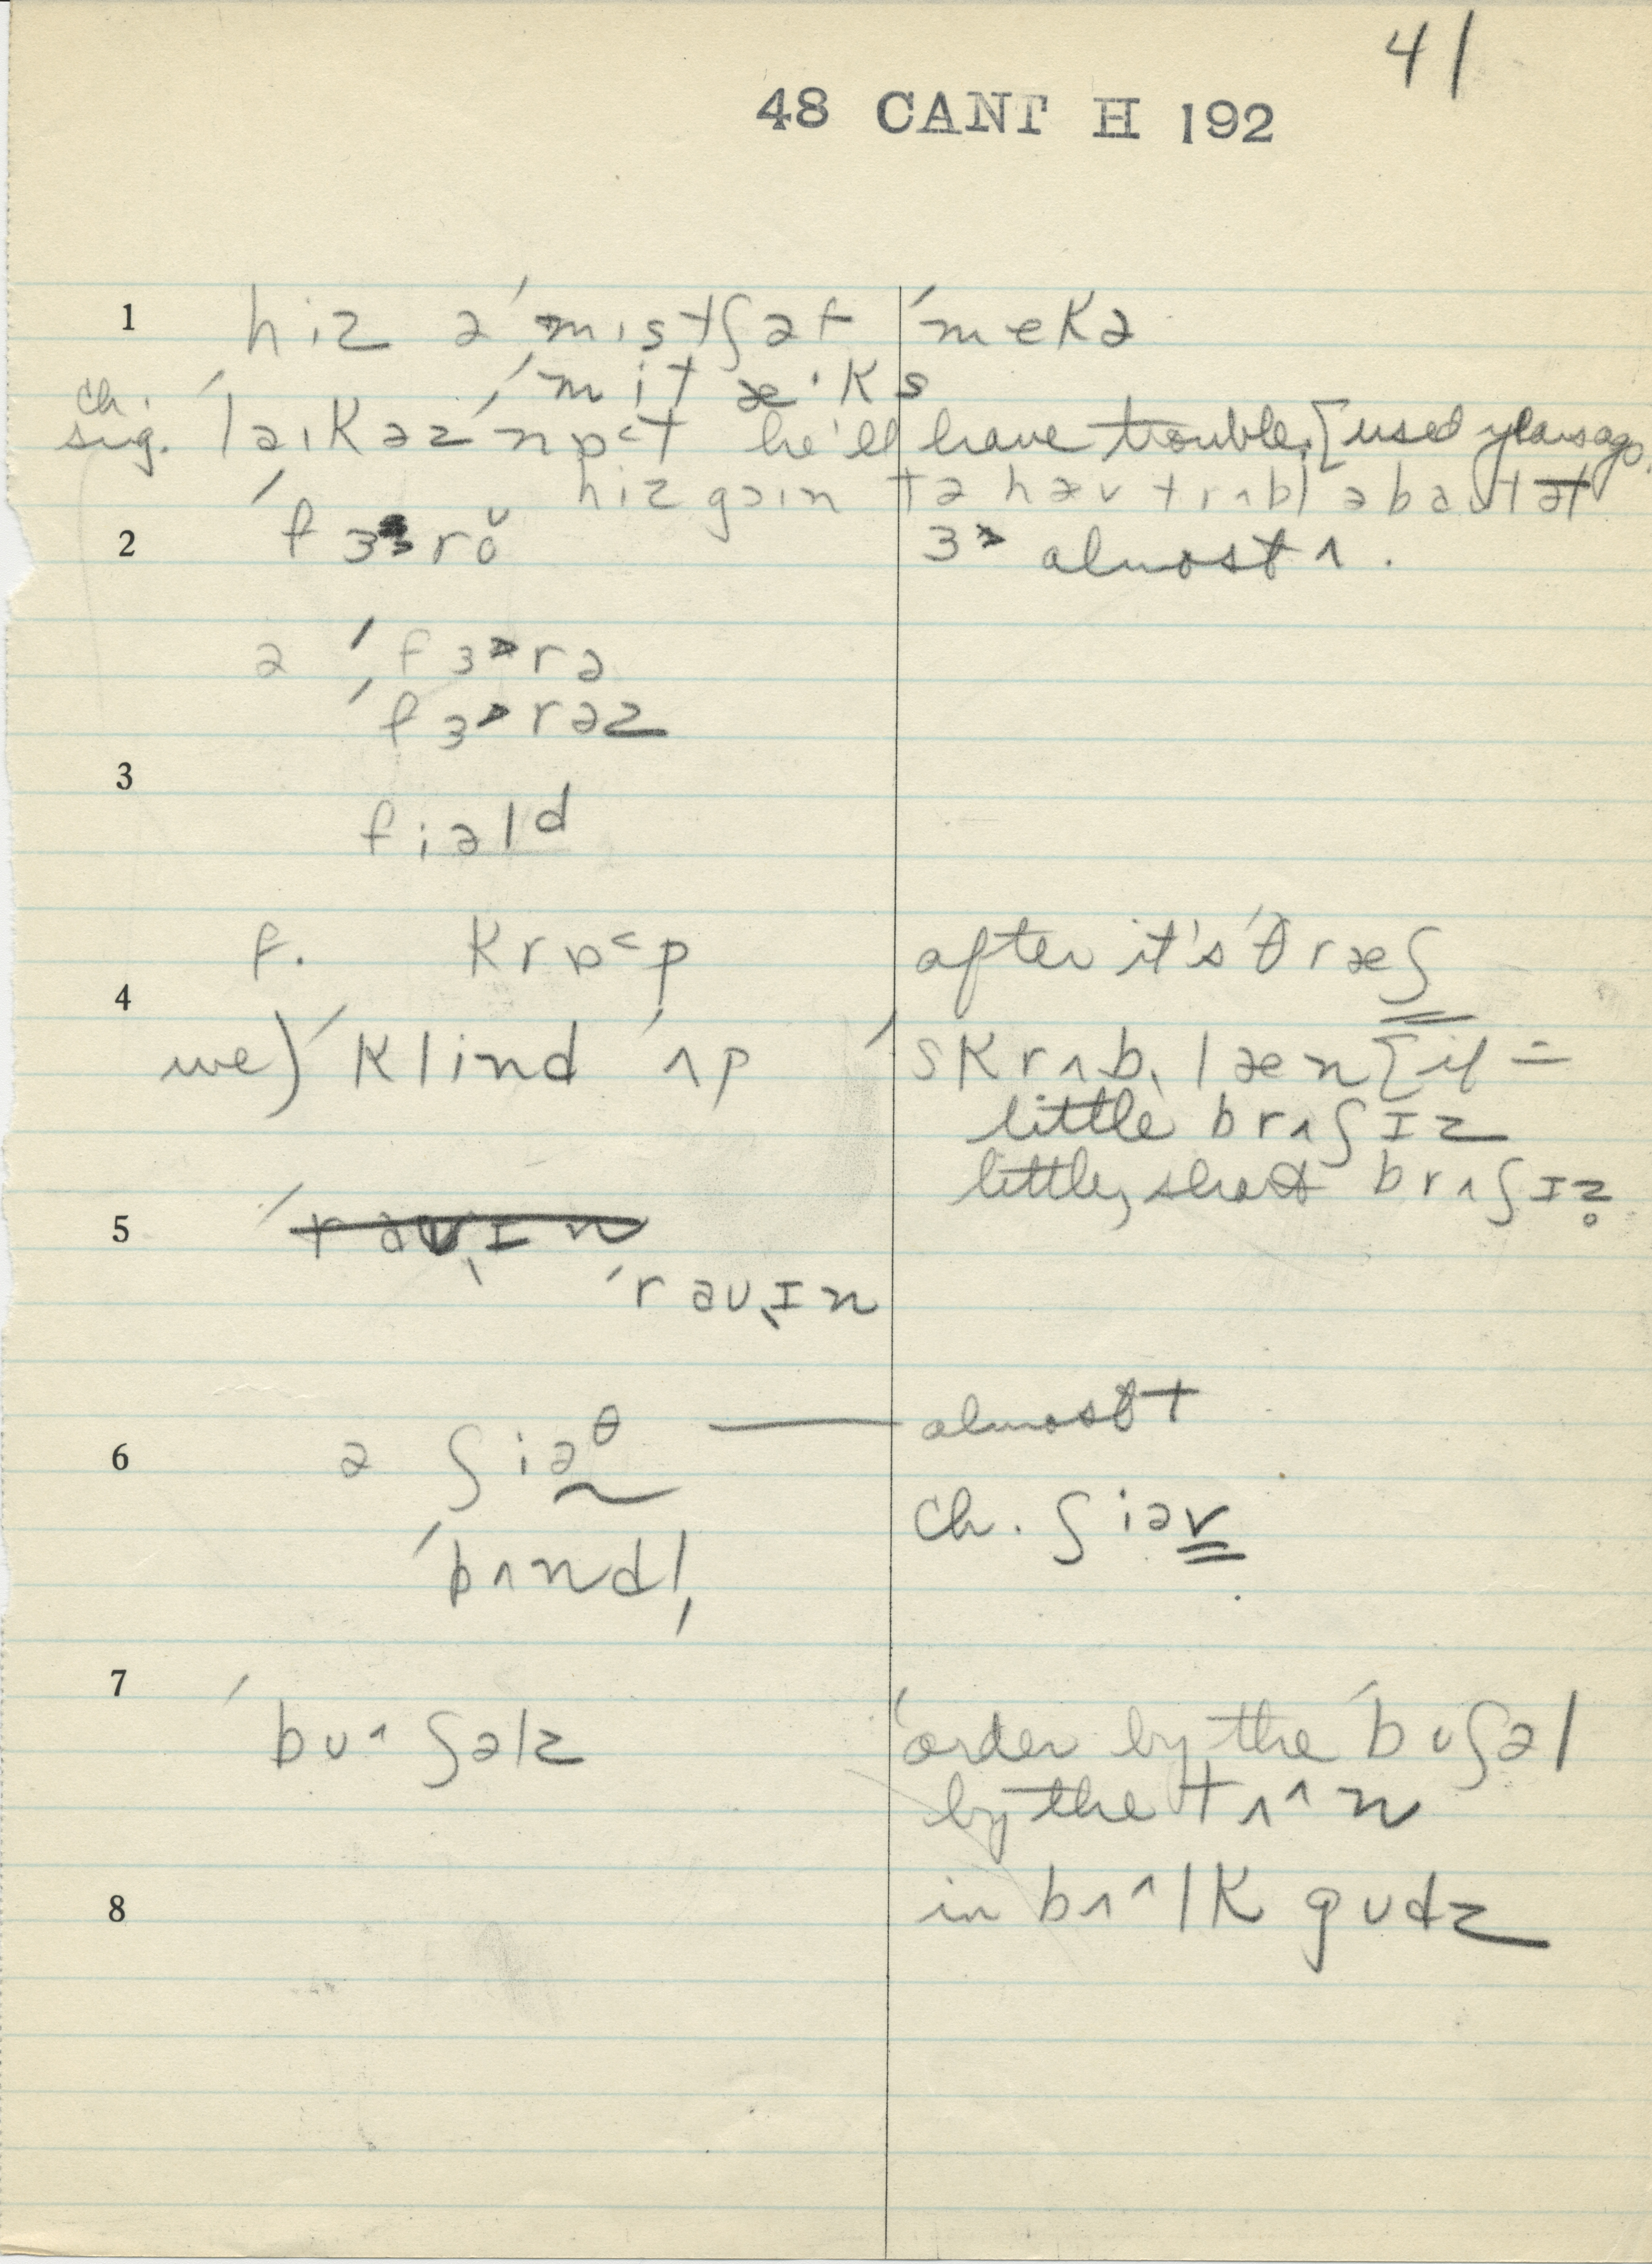 41
48 CANT H 192
1 hiz ə ˈmɪstʃət ˈmekə
ˈmitæˑks
ch. sug. ˈlaɪkəz ˈnɒ˂t he'll have trouble. [used years ago.
hiz goɪn tə hæv trʌbl əbaʊt ət
2 ˈfɝrŏ ɝ almost ʌ.
ə ˈfɝrə
ˈfɝrəz
3
fiəlᵈ
f. krɒ˂p after it's ˈθræʃ
4
we) ˈklind ˈʌp ˈskrʌbˌlæn [if =
little brʌʃɪz
little, short brʌʃɪz̥
5 ˈravˌɪn
ˈravˌɪn
6 ə ʃiəᶿ — almost t
ch. ʃiəv
ˈbʌndl̩
7 ˈbʊ˄ʃəlz order by the ˈbʊʃəl
by the tʌ˄n
8 in bʌ˄lk gʊdz